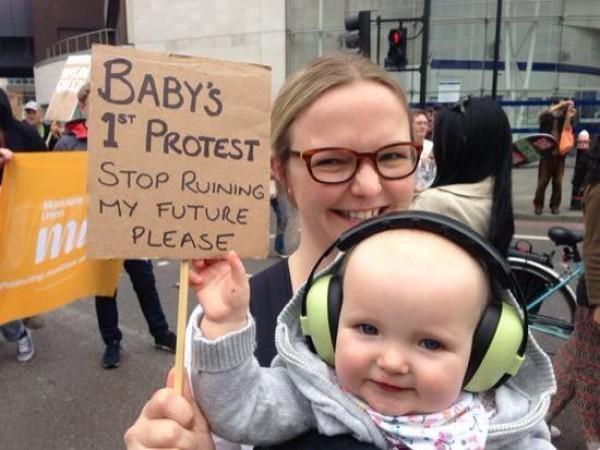 BABY'S
1ST PROTEST
STOP RUINING
MY FUTURE
PLEASE
Musicians'
Union
mu